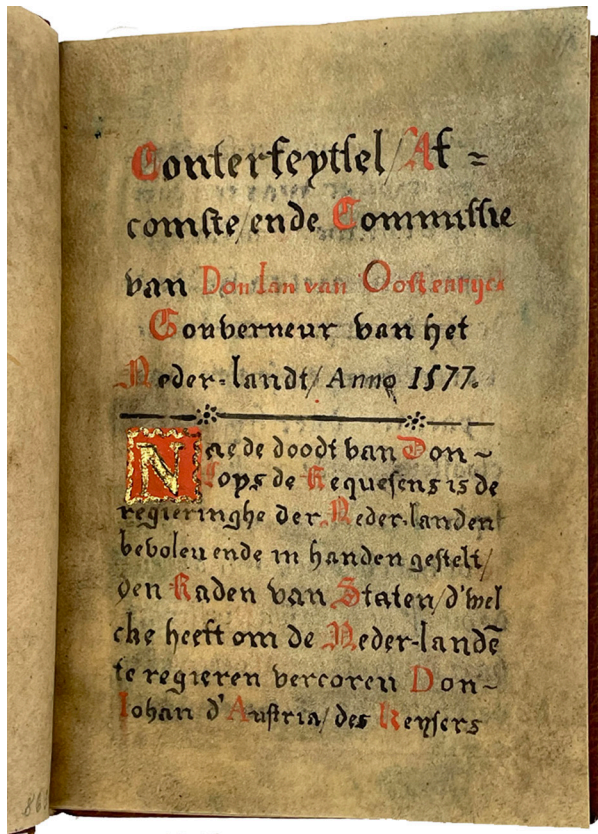 Conterfeytsel / Af=
comste / ende Commissie
van Don Ian van Oostenrijck
Gouverneur van het
Neder-landt / Anno 1577.
Nae de doodt van Don~
Loys de Requesens is de
regieringhe der Neder-landen
bevolen ende in handen gestelt /
den Raden van Staten / d'wel
che heeft om de Neder-landē
te regieren vercoren Don~
Iohan d'Austria / des Keysers